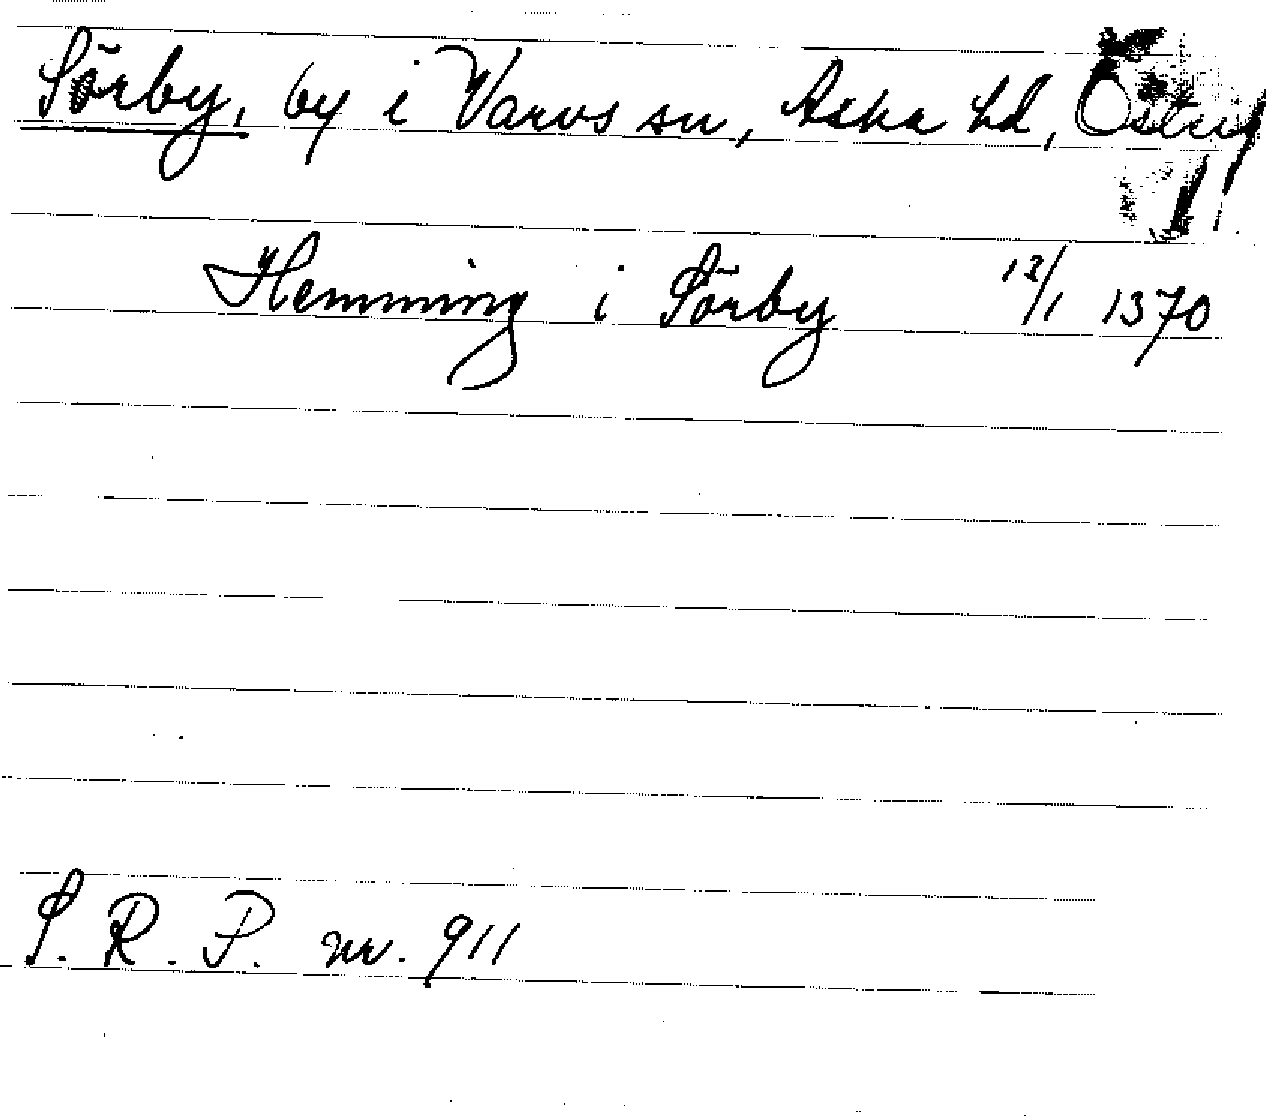 Sörby, by i Varvs sn, Aska hd, Östg
Hemming i Sörby 13/1 1370
S. R. P. nr. 911